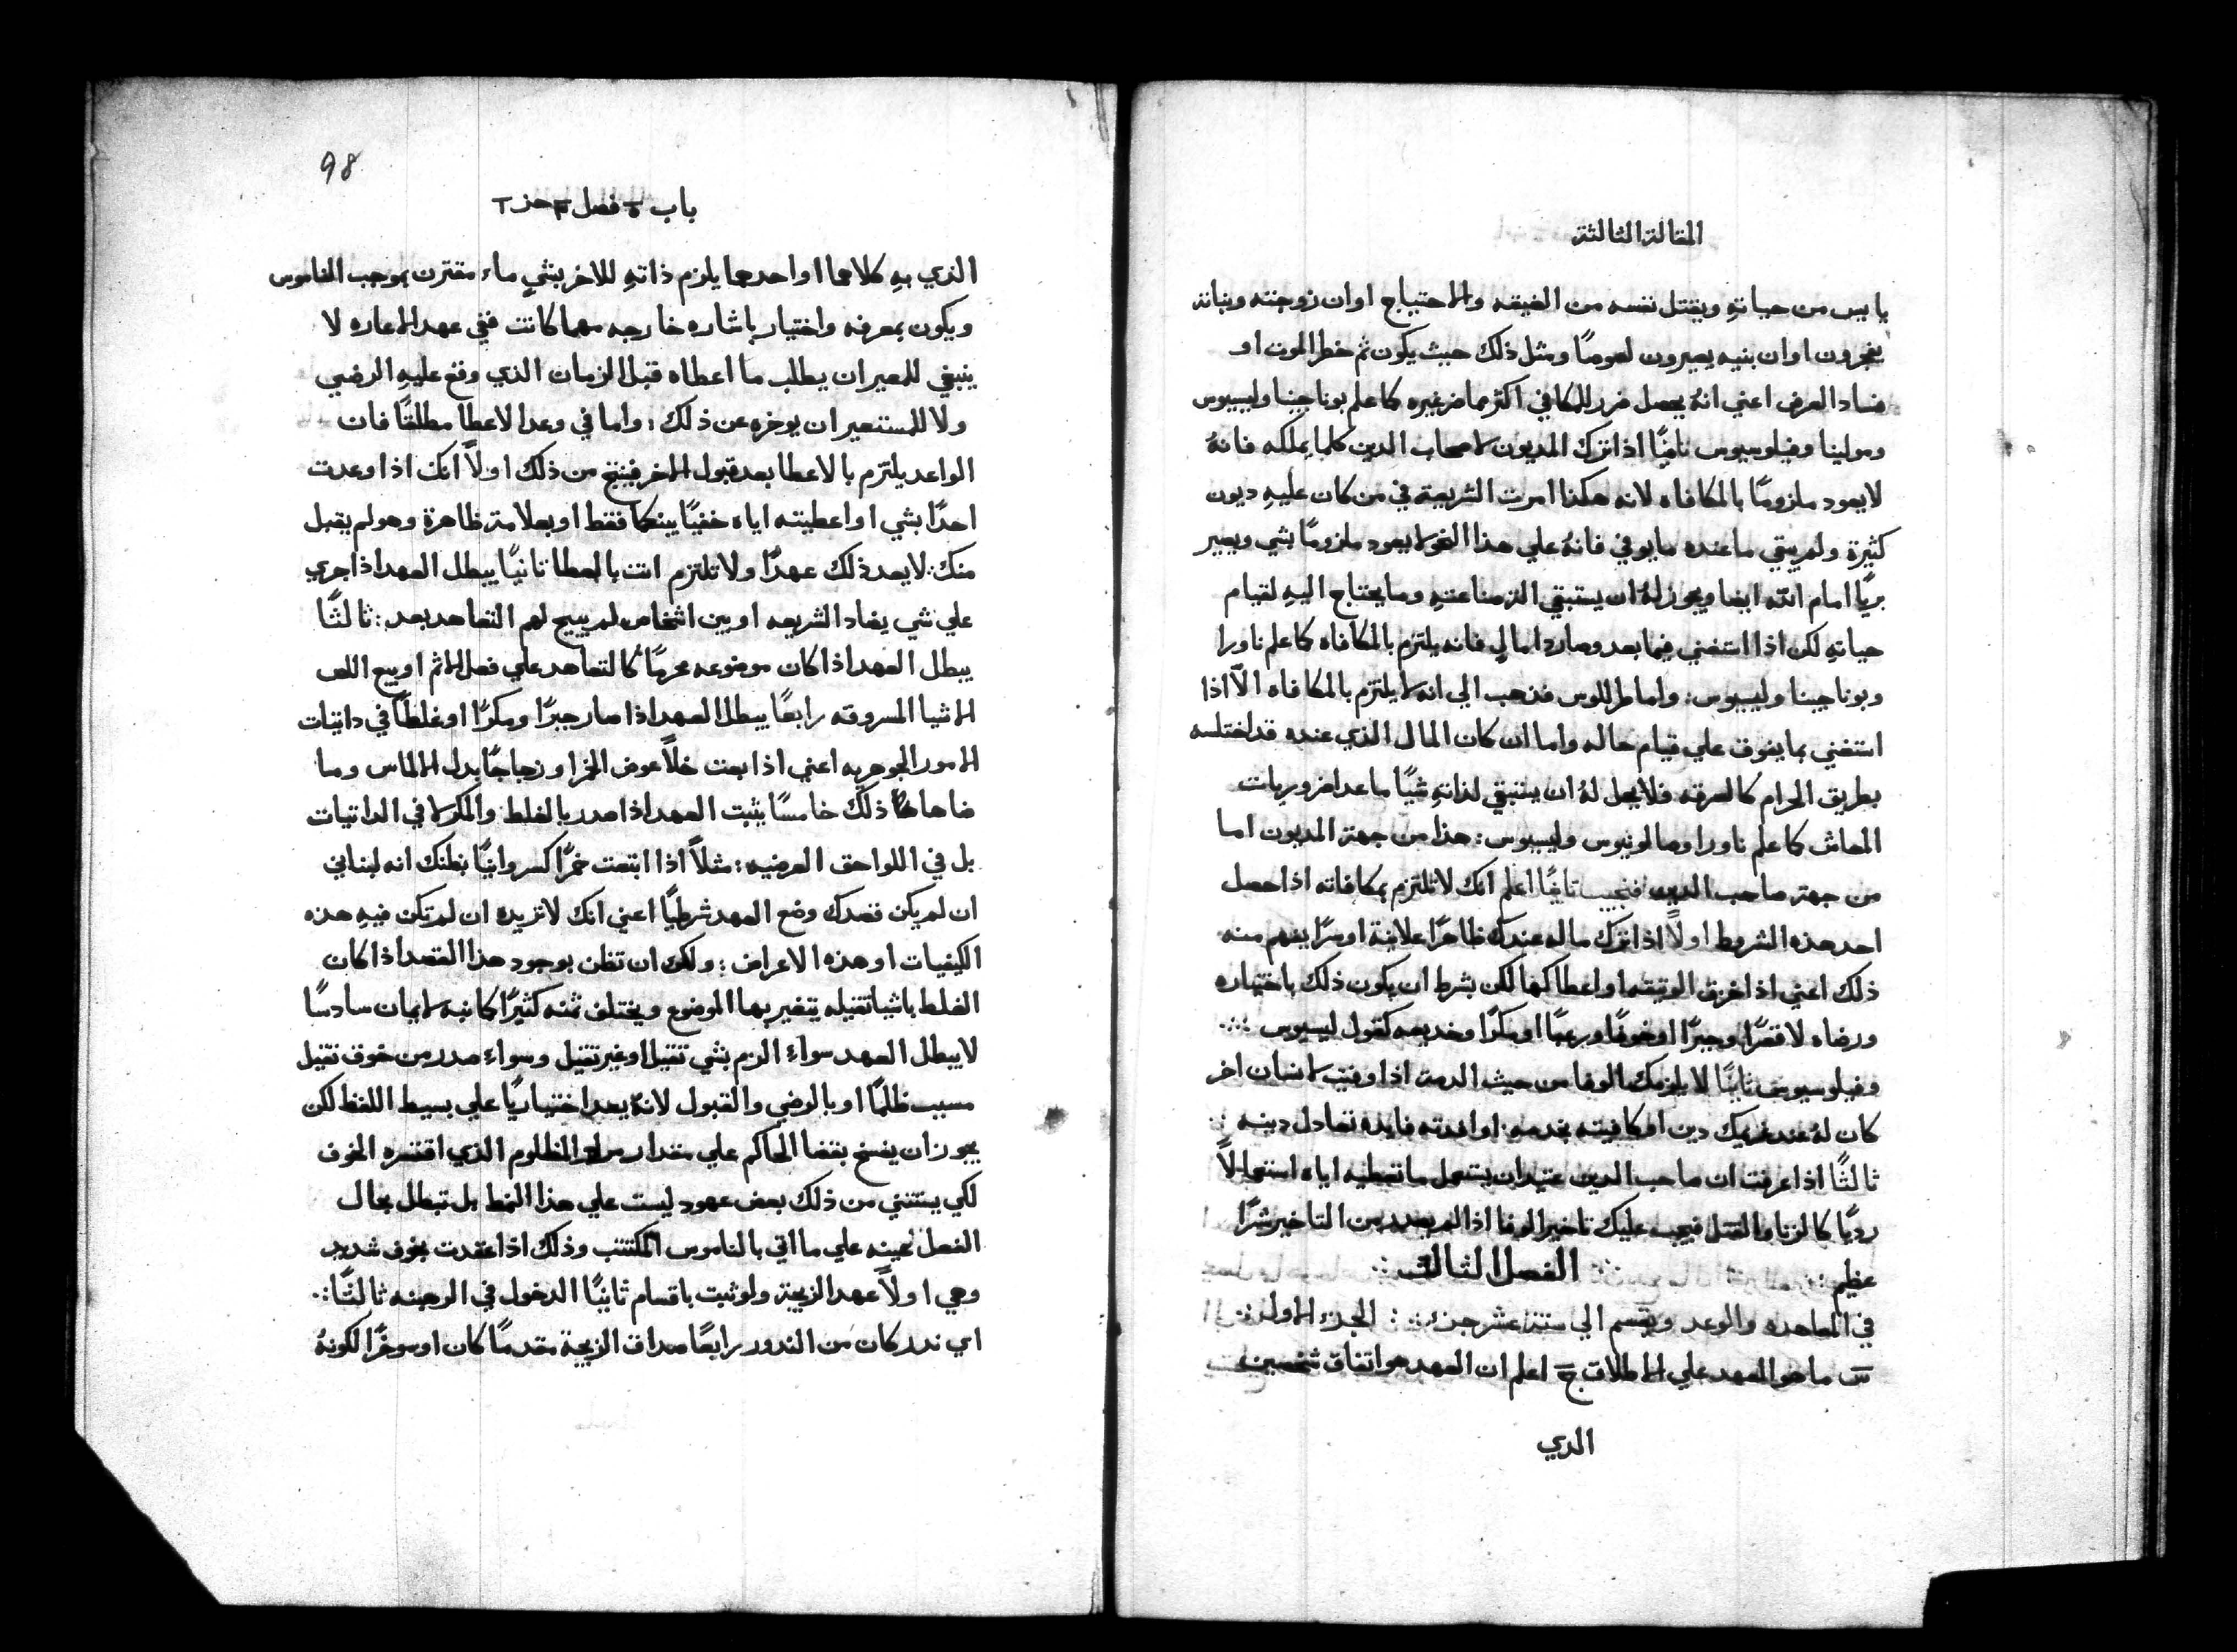 المقالة الثالثة
يايس من حياتهِ ويقتل نفسه من الضيقه والاحتياج او ان زوجته وبناته
يفجرون او ان بنيه يصيرون لصوصًا ومثل ذلك حيث يكون ثم خطر الموت او
فساد العرض اعني انهُ يحصل ضرر للمكافي اكثر مما ضر غيره كما علم بوناجينا وليسيوس
ومولينا وفيلوسيوس ثانيًا اذا ترك المديون لاصحاب الدين كلما يملكه فانهُ
لا يعود ملزومًا بالمكافاه لانه هكذا امرت الشريعة في من كان عليهِ ديون
كثيرة ولم يبقي ما عنده ما يوفي فانهُ علي هذا النحو لا يعود ملزومًا بشي ويصير
بريًا امام الله ايضا ويجوز لهُ ان يستبقي الزمنا عنهِ وما يحتاج اليهِ لقيام
حياتهِ لكن اذا استغني فيما بعد وصار ذا مالٍ فانه يلتزم بالمكافاه كما علم ناورا
وبوناجينا وليسيوس: واما طرللوس فذهب الي انه لا يلتزم بالمكافاه الّا اذا
استغني بما يفوق علي قيام حاله واما ان كان المال الذي عنده قد اختلسه
بطريق الحرام كالسرقه فلا يحل لهُ ان يستبقي لذاتهِ شيًا ما عدا ضروريات
المعاش كما علم ناورا وصالونيوس وليسيوس: هذا من جهة المديون اما
من جهة صاحب الدين فنجيب ثانيًا اعلم انك لا تلتزم بمكافاته اذا حصل
احد هذه الشروط اولاً اذا ترك ماله عندك ظاهرًا علانية او سرًا يفهم منه
ذلك اعني اذا خرق الوثيقه او اعطاكها لكن بشرط ان يكون ذلك باختياره
ورضاه لا قصرًا وجبرًا او خوفًا ورعبًا او مكرًا وخديعه كقول ليسيوس
وفيلوسيوس ثانيًا لا يلزمك الوفا من حيث الذمة اذا وفيت لانسان اخر
كان لهُ عند غريمك دين او كافيته بخدمه او افدته فايده تعادل دينه
ثالثًا اذا عرفت ان صاحب الدين عتيد ان يستعمل ما تعطيه اياه استعمالاً
رديًا كالزنا والقتل فيجب عليك تاخير الوفا اذا لم يصدر من التاخير شرًا
عظيم الفصل الثالث
في المعاهده والوعد ويقسم الي ستة عشر جزء الجزء الاول
س ما هو العهد علي الاطلاق ج اعلم ان العهد هو اتفاق شخصين
الدي
98
باب فصل جز
الذي بهِ كلاهما او احدهما يلزم ذاتهِ للاخر بشيٍ ماء مقترن بموجب الناموس
ويكون بمعرفه واختيار باشاره خارجه مهما كانت ففي عهد الاعاره لا
ينبغي للمعير ان يطلب ما اعطاه قبل الزمان الذي وقع عليهِ الرضي
ولا للمستعير ان يوخره عن ذلك: واما في وعد الاعطا مطلقًا فان
الواعد يلتزم بالاعطا بعد قبول الاخر فينتج من ذلك اولاً انك اذا وعدت
احدًا بشي او اعطيته اياه خفيًا بينكما فقط او بعلامة ظاهرة وهو لم يقبل
منك: لا يعد ذلك عهدًا ولا تلتزم انت بالعطا ثانيًا يبطل العهد اذا جري
علي شي يضاد الشريعه او بين اشخاص لم يبيح لهم التعاهد بعد: ثالثًا
يبطل العهد اذا كان موضوعه محرمًا كالتعاهد علي فعل الاثم او بيع اللص
الاشيا المسروقه رابعًا يبطل العهد اذا صار جبرًا ومكرًا او غلطًا في داتيات
الامور الجوهريه اعني اذا بعت خلاً عوض الخمر او زجاجًا بدل الالماس وما
ضاها ذلك خامسًا يثبت العهد اذا صدر بالغلط والمكر لا في الداتيات
بل في اللواحق العرضيه: مثلاً اذا ابتعت خمرًا كسروانيًا بظنك انه لبناني
ان لم يكن قصدك وضع العهد شرطيًا اعني انك لا تريده ان لم تكن فيهِ هذه
الكيفيات او هذه الاعراض: ولك ان تظن بوجود هذا القصد اذا كان
الغلط باشيا ثقيله يتغير بها الموضوع ويختلف ثمنه كثيرًا كما نبه لايمان سادسًا
لا يبطل العهد سواء الزم بشي ثقيل او غير ثقيل وسواء صدر من خوف ثقيل
مسبب ظلمًا او بالرضي والقبول لانهُ يعد اختياريًا علي بسيط اللفظ لكن
يجوز ان يفسخ بقضا الحاكم علي مقدار المظلوم الذي اقتسره الخوف
لكي يستثني من ذلك بعض عهود ليست علي هذا النمط بل تبطل بحال
الفعل عينه علي ما اتي بالناموس المكتتب وذلك اذا عقدت بخوف شديد
وهي اولاً عهد الزيجة ولو ثبت باقسام ثانيًا الدخول في الرهبنه ثالثًا:
اي ندر كان من الندور رابعًا صداق الزيجة مقدمًا كان او موخرًا لكونهُ